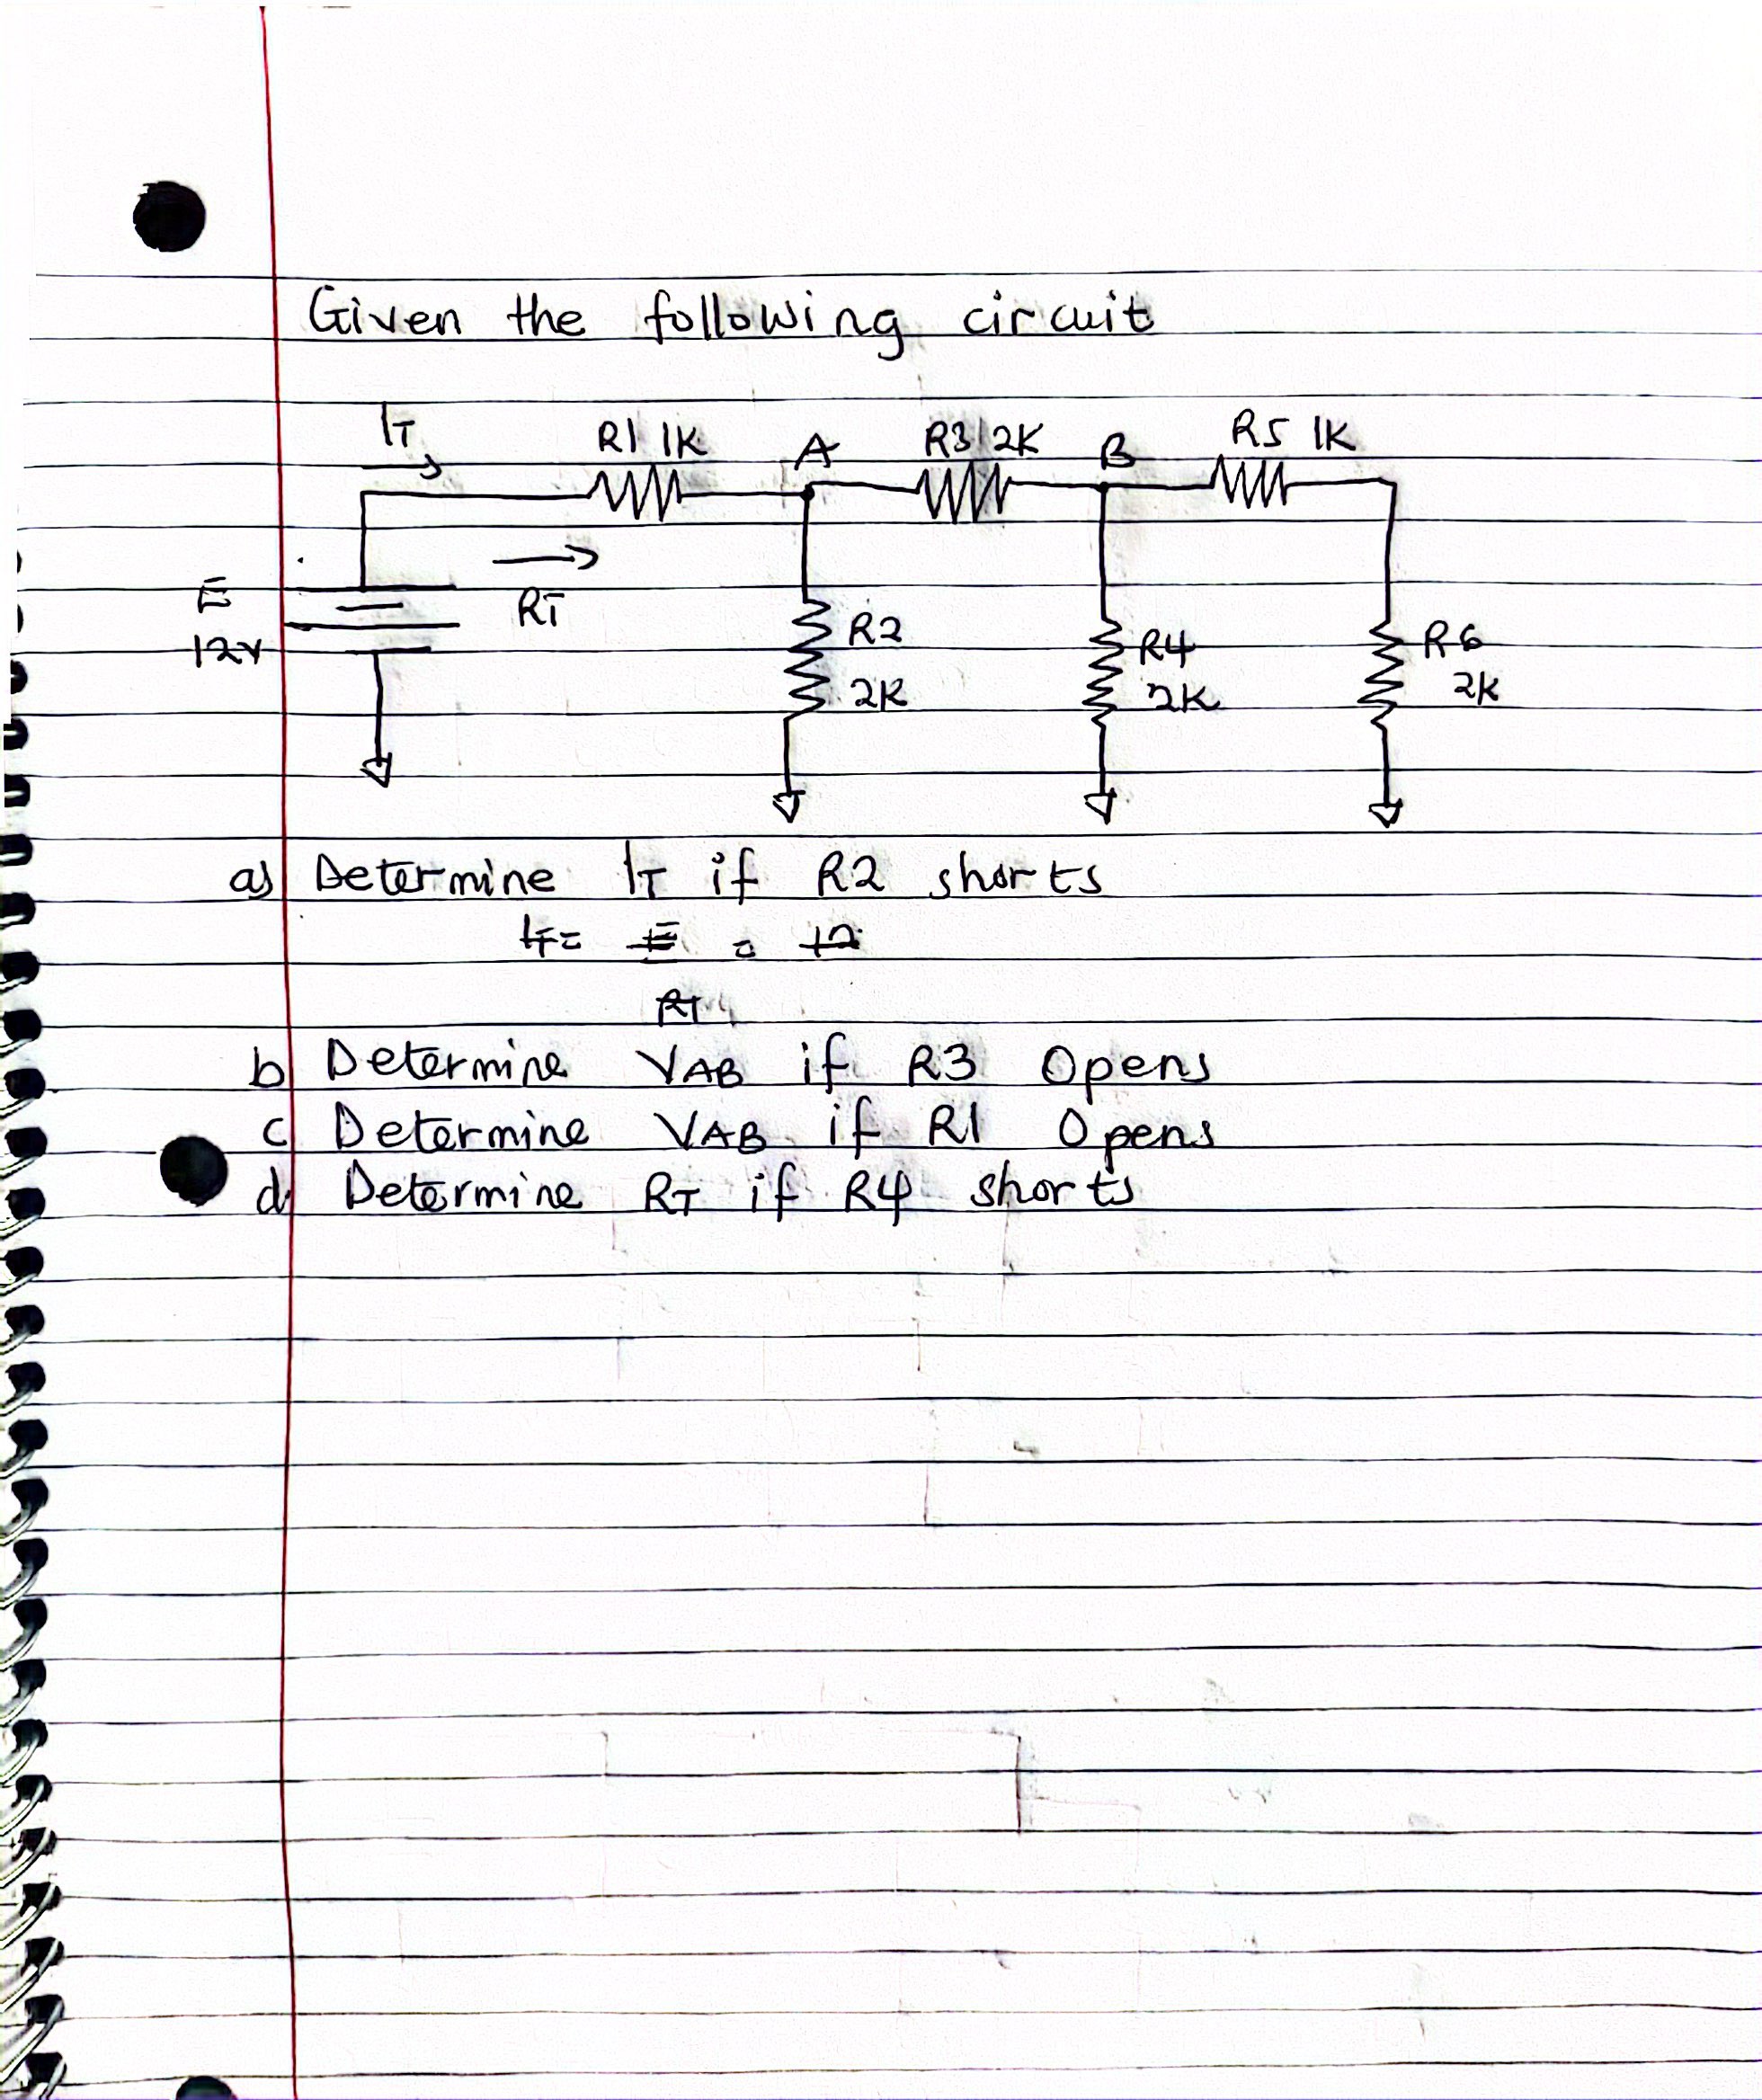 Given the following circuit
IT R1 1K A R3 2K B R5 1K
E RT
12V
R2 R4 R6
2K 2K 2K
a) Determine IT if R2 shorts
IT = E = 12
RT
b) Determine VAB if R3 Opens
c) Determine VAB if R1 Opens
d) Determine RT if R4 shorts